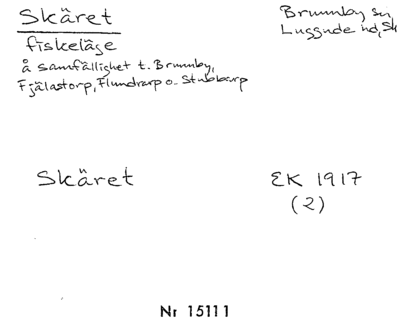 Skäret
Brunnby sn,
fiskeläge
Luggude hd, Sk
å samfällighet t. Brunnby,
Fjälastorp, Flundrarp o. Stubbarp
Skäret
EK 1917
(2)
Nr 15111